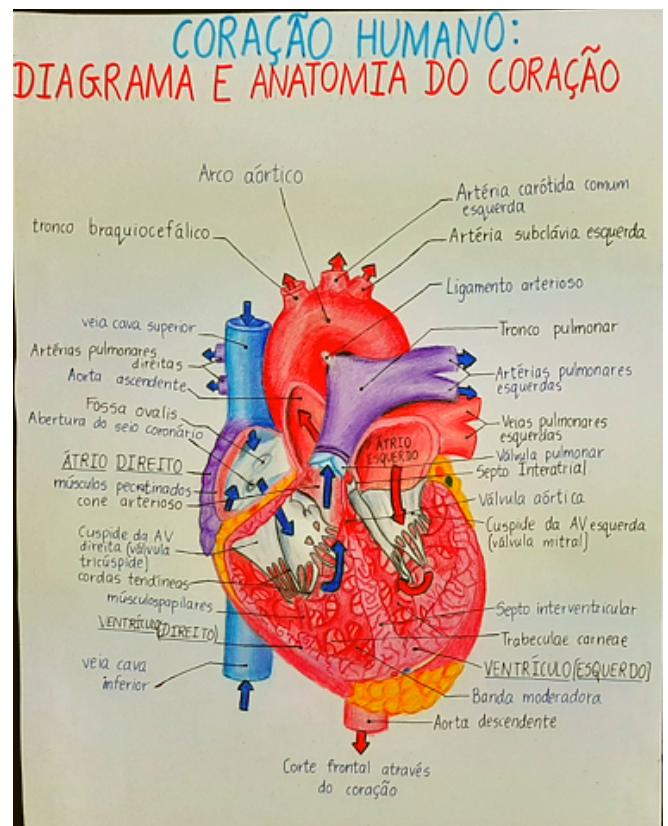 CORAÇÃO HUMANO:
DIAGRAMA E ANATOMIA DO CORAÇÃO
Arco aórtico
tronco braquiocefálico
veia cava superior
Artérias pulmonares
direitas
Aorta ascendente
Fossa ovalis
Abertura do seio coronário
ÁTRIO DIREITO
músculos pecntinados
cone arterioso
Cuspide da AV
direita (válvula
tricúspide)
cordas tendíneas
músculospapilares
VENTRÍCULO(DIREITO)
veia cava
inferior
Artéria carótida comum
esquerda
Artéria subclávia esquerda
Ligamento arterioso
Tronco pulmonar
Artérias pulmonares
esquerdas
Veias pulmonares
esquerdas
ÁTRIO
ESQUERDO
Válvula pulmonar
Septo Interatrial
Válvula aórtica
Cuspide da AV esquerda
(válvula mitral)
Septo interventricular
Trabeculae carneae
VENTRÍCULO(ESQUERDO)
Banda moderadora
Aorta descendente
Corte frontal através
do coração